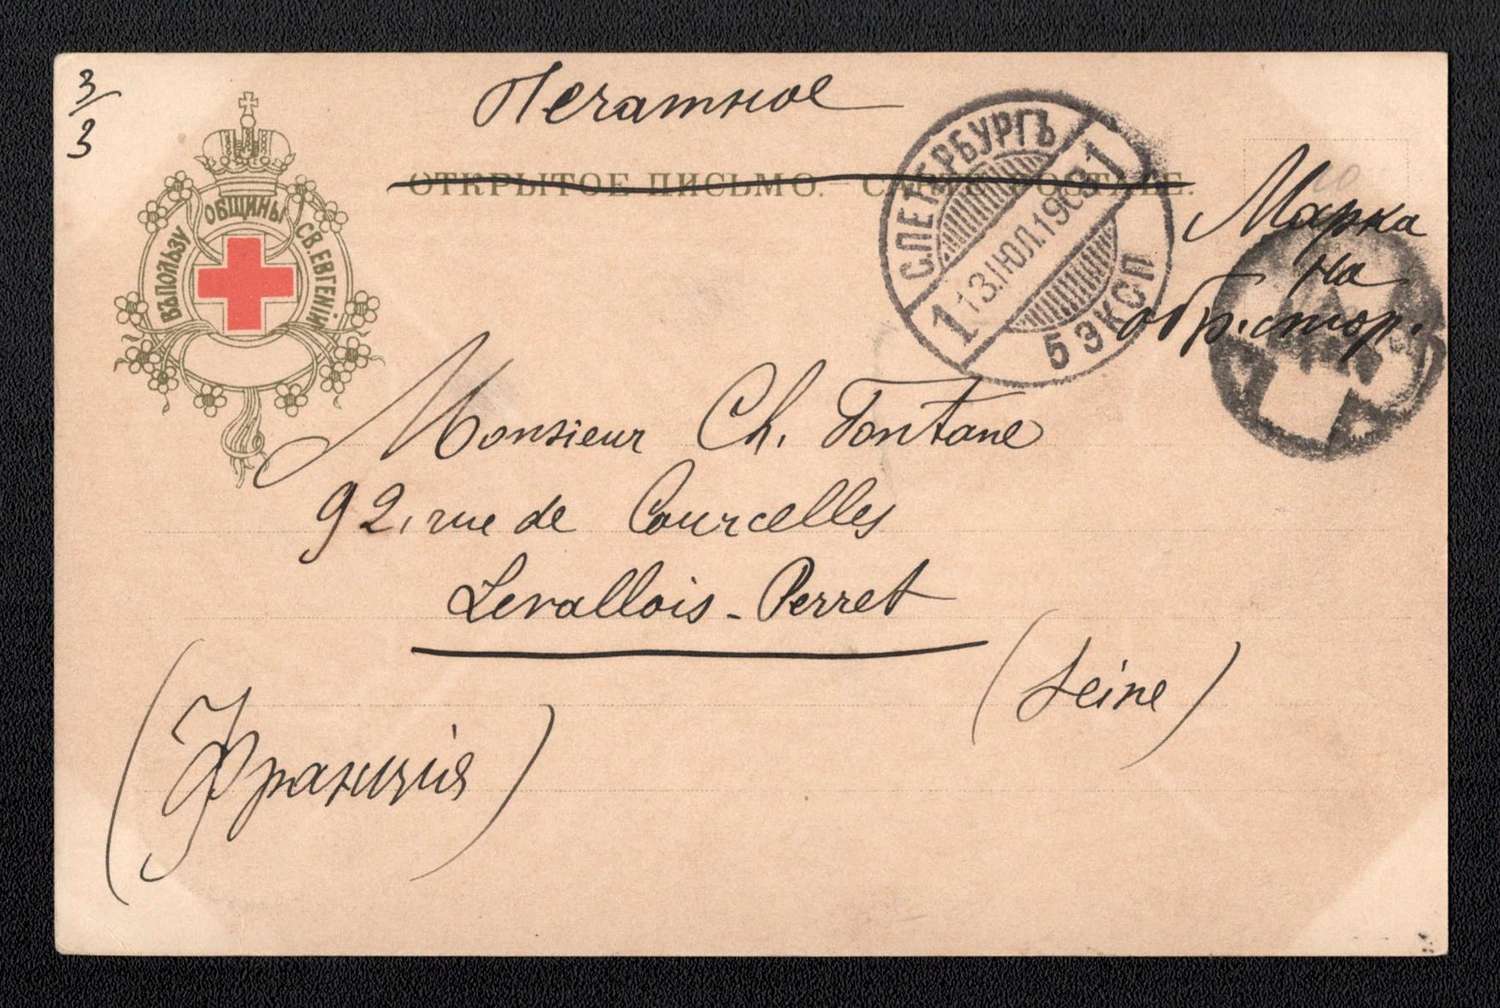 3/3
Печатное
ОТКРЫТОЕ ПИСЬМО.
ВЪ ПОЛЬЗУ ОБЩИНЫ СВ. ЕВГЕНІИ
С.ПЕТЕРБУРГЪ
1 13.IЮЛ.1903 1
5 ЭКСП
Марка
на
обр. стор.
Monsieur Ch. Fontane
92, rue de Courcelles
Levallois-Perret
(Seine)
(Франція)